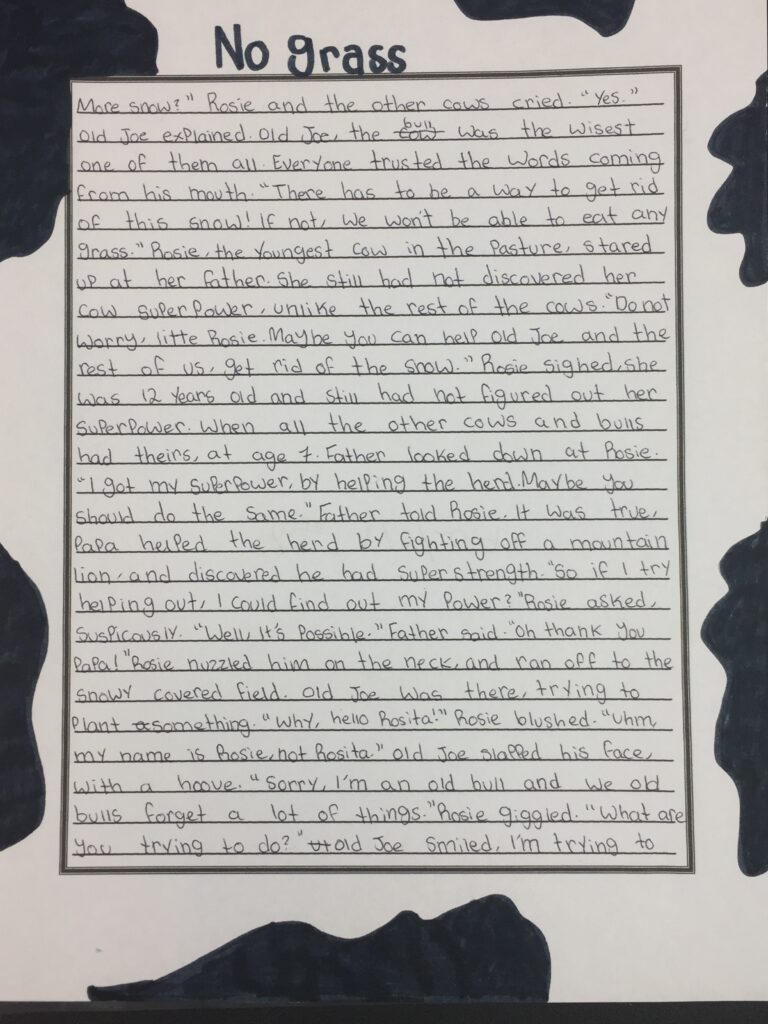 No grass
More snow?" Rosie and the other cows cried. "Yes."
Old Joe explained. Old Joe, the cow bull was the wisest
one of them all. Everyone trusted the words coming
from his mouth. "There has to be a way to get rid
of this snow! If not, we won't be able to eat any
grass." Rosie, the youngest cow in the pasture, stared
up at her father. She still had not discovered her
cow superpower, unlike the rest of the cows. "Do not
worry, litte Rosie. Maybe you can help Old Joe and the
rest of us, get rid of the snow." Rosie sighed, she
was 12 years old and still had not figured out her
superpower. When all the other cows and bulls
had theirs, at age 7. Father looked down at Rosie.
"I got my superpower, by helping the herd. Maybe you
should do the same." Father told Rosie. It was true,
Papa helped the herd by fighting off a mountain
lion, and discovered he had super strength. "So if I try
helping out, I could find out my power?" Rosie asked,
suspicously. "Well, it's possible." Father said. "Oh thank you
Papa!" Rosie nuzzled him on the neck, and ran off to the
snowy covered field. Old Joe was there, trying to
plant a something. "Why, hello Rosita!" Rosie blushed. "Uhm,
my name is Rosie, not Rosita." Old Joe slapped his face,
with a hoove. "Sorry, I'm an old bull and we old
bulls forget a lot of things." Rosie giggled. "What are
you trying to do?" Old Joe smiled, I'm trying to